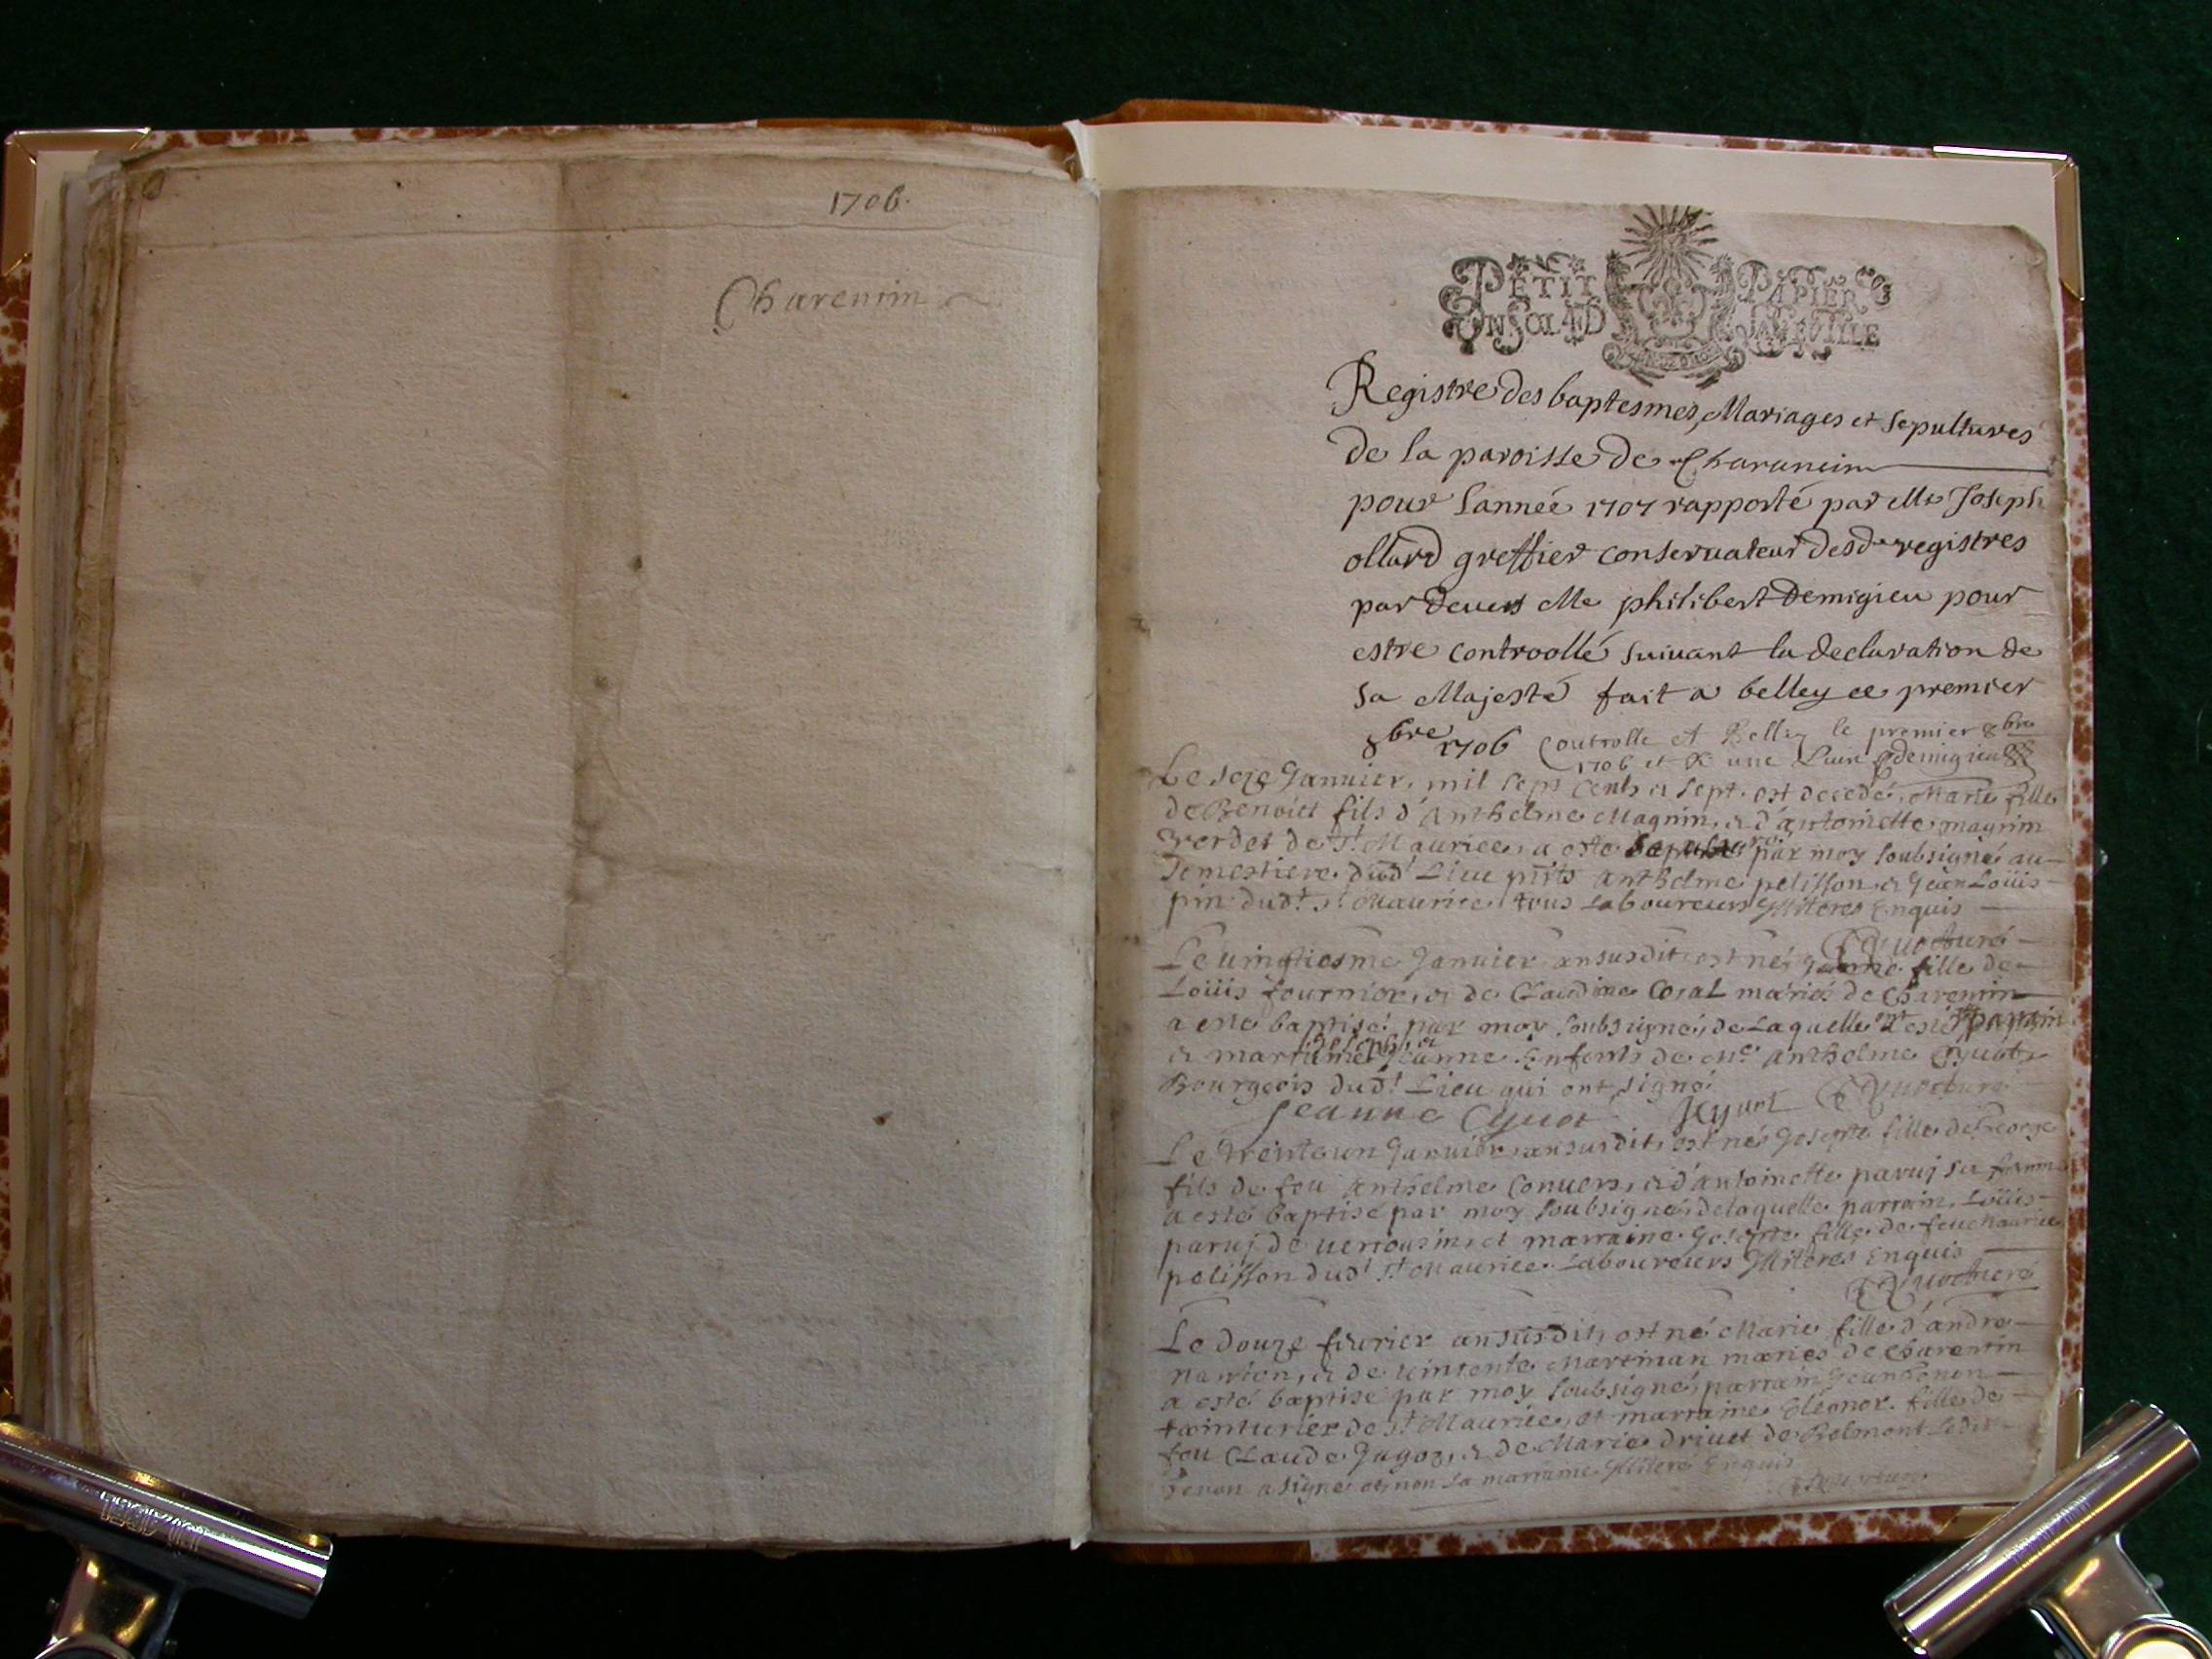 1706.
Charentin
PETIT PAPIER
UN SOL 4 D LA FEUILLE
Registre des baptesmes, Mariages et sepultures
de la paroisse de Charancin
pour lannée 1707 rapporté par Me Joseph
ollard greffier conseruateur desd. registres
par deuers Me philibert Demigieu pour
estre controollé suiuant la declaration de
sa Majesté fait a belley ce premier
8bre 1706 Controlle A Belley le premier 8bre
1706 et R une Liure Demigieu
Le seze Januier, mil sept cents et sept est decedé, Marie fille
de Benoict fils d'Anthelme Magnin, et d'antoinette magnin
Verdet de St Maurice, a esté par moy soubsigné au
Semestiere dudt Lieu pnts anthelme pelisson et Jean Loüis
pin dudt St Maurice, tous Laboureurs Illiteres Enquis
Le uingtiesme Januier an susdit est né Jeanne fille de
Loüis fournier, et de Claudine Coral mariés de Charentin
a esté baptisé par moy soubsigné, de Laquelle ont esté parrain
et marraine Joseph, et Jeanne Enfants de Me anthelme Cyuot
Bourgeois dudt Lieu qui ont signé
Jeanne Cyuot JCyuot
Le trente un Januier an susdit, est né Josepte fille de George
fils de feu Anthelme Conuers, et d'antoinette paruj sa femme
a esté baptisé par moy soubsigné, de laquelle parrain Loüis
paruj de uerrousin, et marraine Josepte fille de feu Maurice
pelisson dudt St Maurice Laboureurs Illiteres Enquis
Le douze feurier an susdit, est né Marie fille d'andre
nanton, et de uintente Martinan mariés de Charentin
a esté baptisé par moy soubsigné, parrain Jean Benon
tainturier de St Maurice, et marraine Eléonor fille de
feu Claude Jugoz, et de Marie driuet de Belmont Ledit
Benon a signé et non la marraine Illiteré Enquis